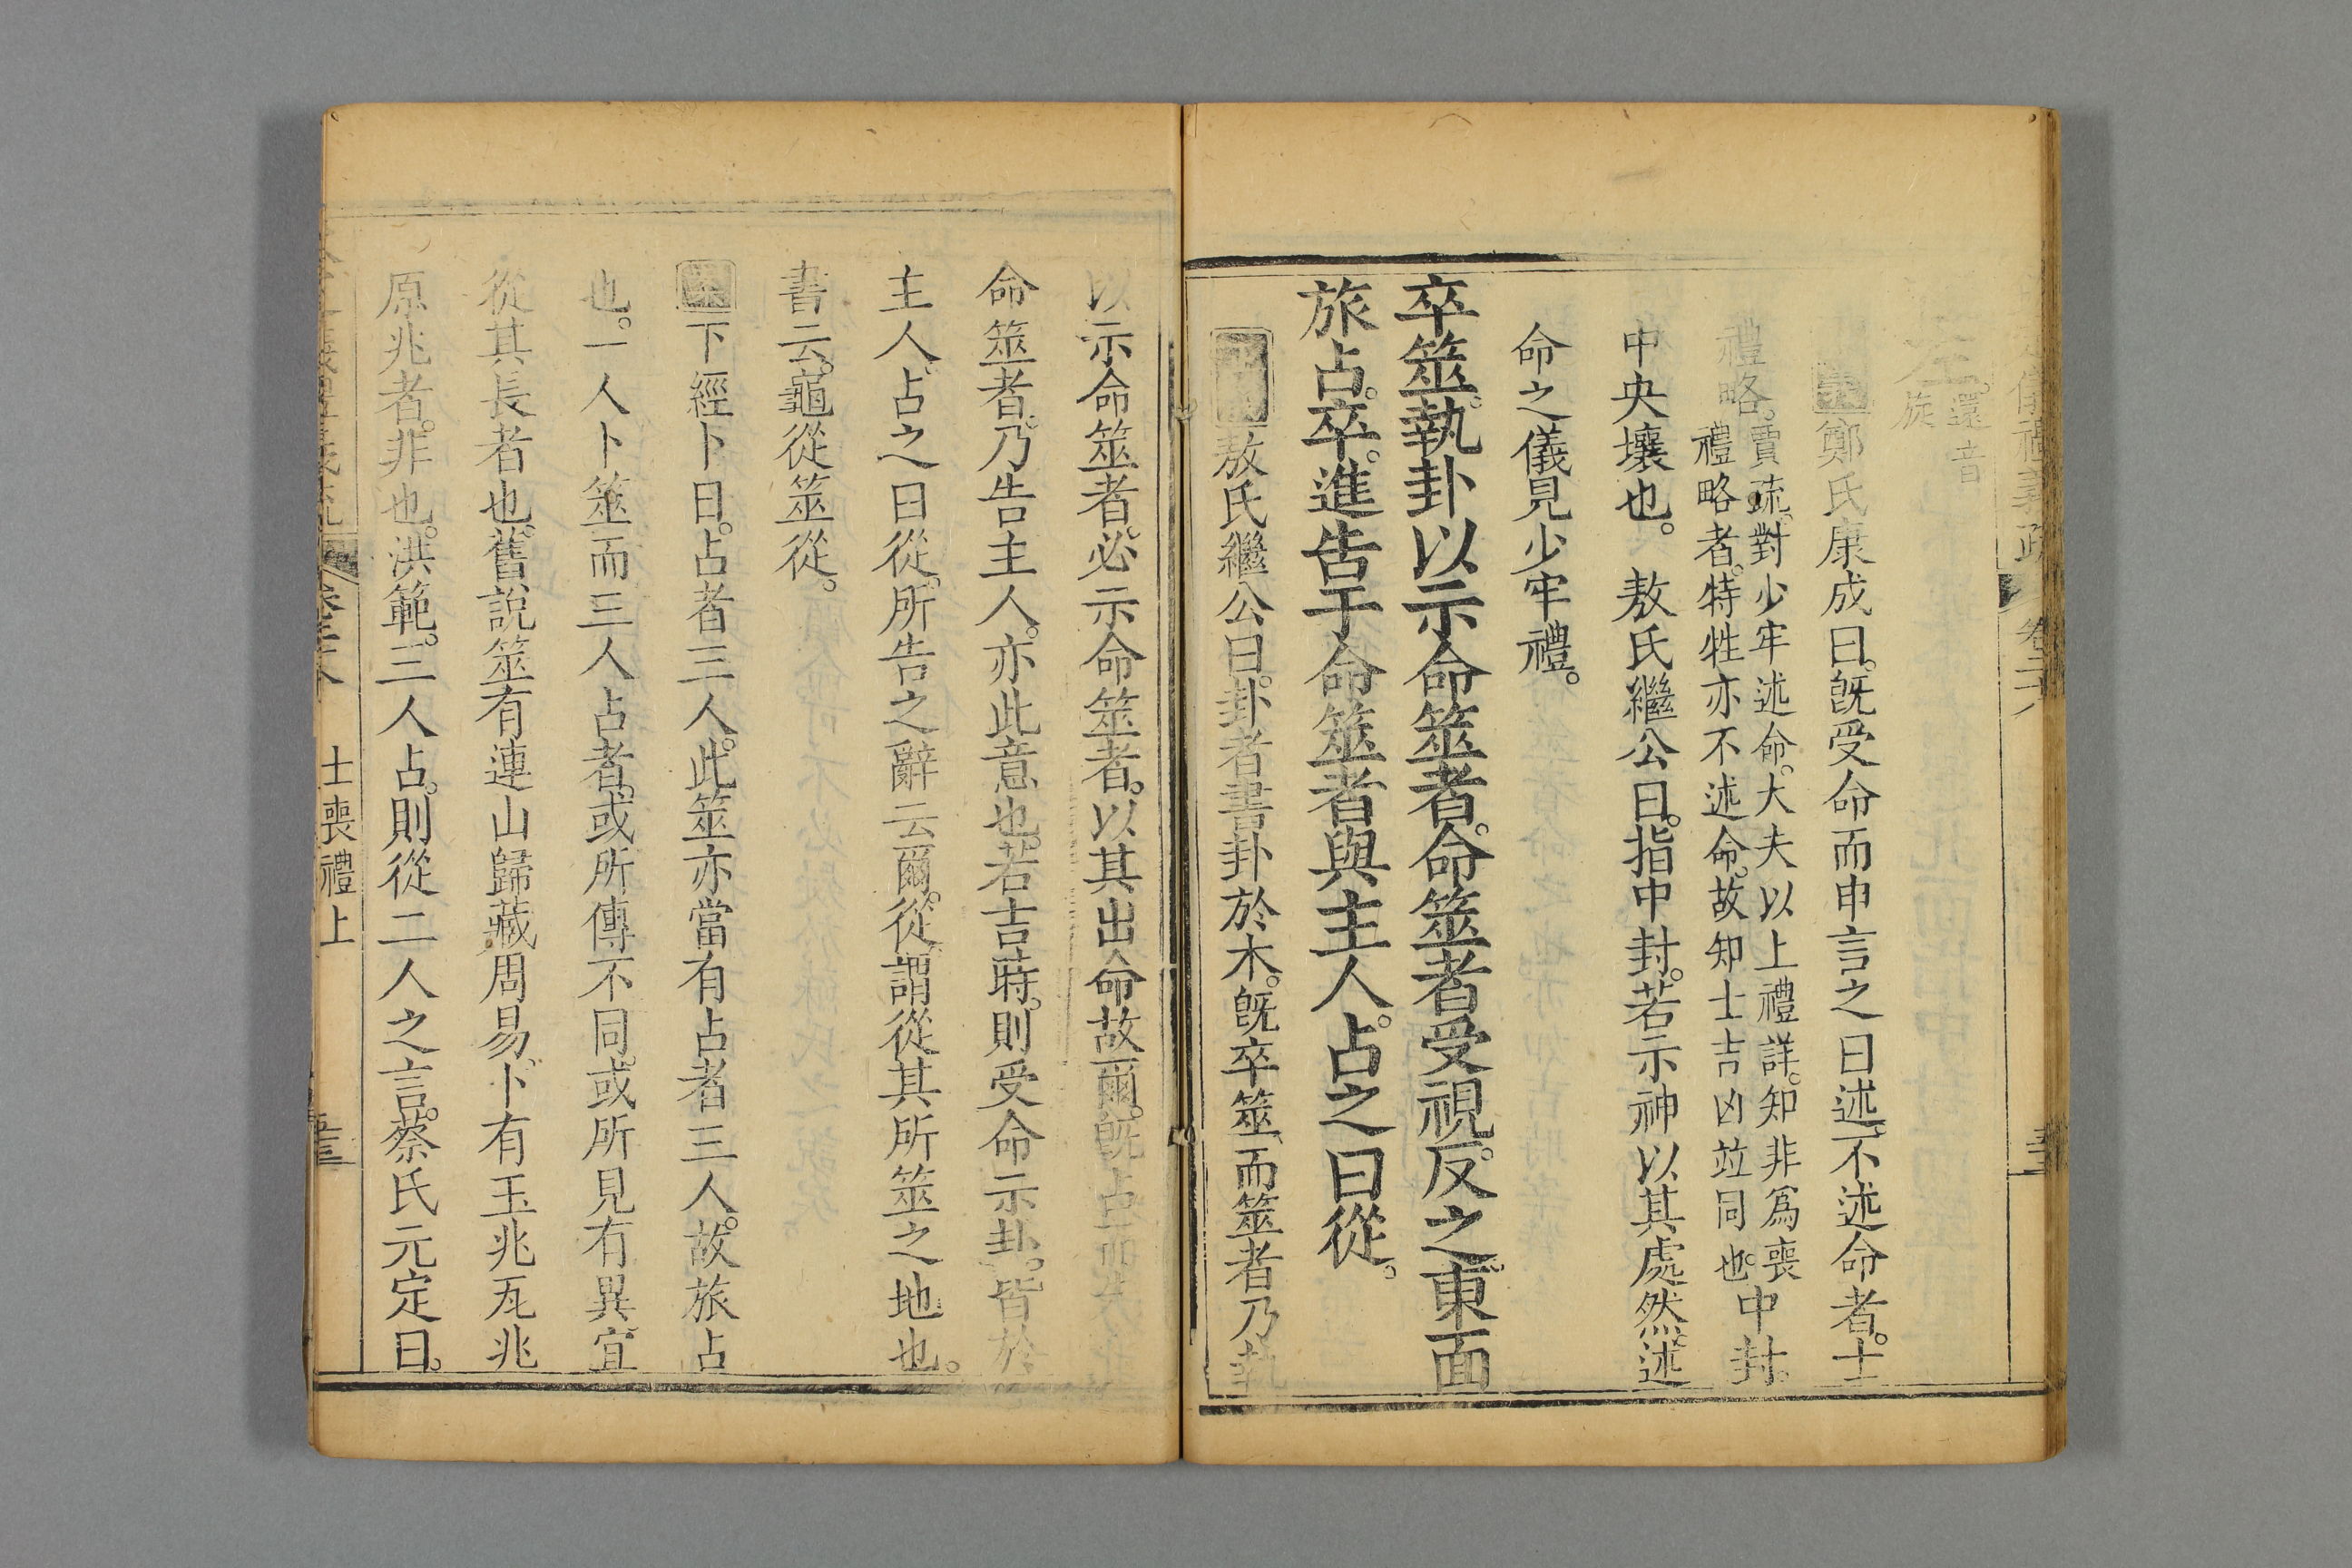 儀禮義疏 卷二十八
左還音
旋
鄭氏康成曰。旣受命而申言之曰述。不述命者。士
禮略。賈疏。對少牢述命。大夫以上禮詳。知非爲喪
禮略者。特牲亦不述命。故知士吉凶竝同也。中封。
中央壤也。敖氏繼公曰。指中封。若示神以其處然。述
命之儀見少牢禮。
卒筮。執卦以示命筮者。命筮者受視。反之。東面
旅占。卒。進告于命筮者與主人。占之曰從。
敖氏繼公曰。卦者書卦於木。旣卒筮、而筮者乃執
以示命筮者。必示命筮者。以其出命故爾。旣占而
命筮者。乃告主人。亦此意也。若吉時。則受命示卦。皆於
主人、占之曰從。所告之辭云爾。從、謂從其所筮之地也。
書云。龜從筮從。
下經卜日。占者三人。此筮亦當有占者三人。故旅占
也。一人卜筮而三人占者。或所傳不同。或所見有異。宜
從其長者也。舊說筮有連山歸藏周易、卜有玉兆瓦兆
原兆者。非也。洪範。三人占。則從二人之言。蔡氏元定曰。
士喪禮上